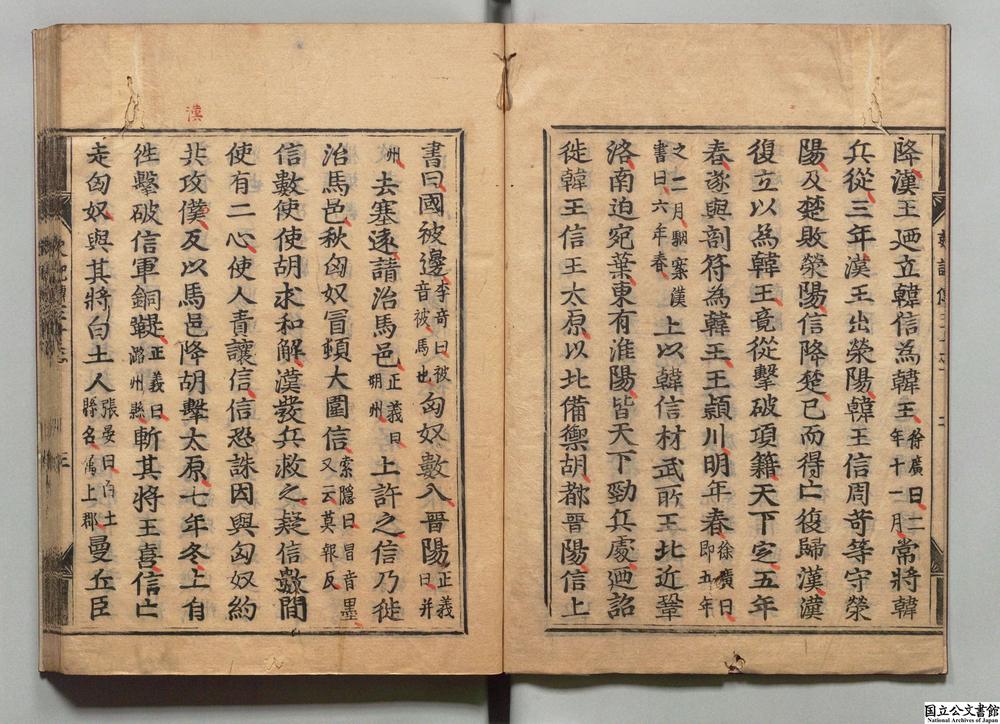 降漢王廼立韓信為韓王徐廣曰二年十一月常將韓
兵從三年漢王出滎陽韓王信周苛等守滎
陽及楚敗滎陽信降楚已而得亡復歸漢漢
復立以為韓王竟從擊破項籍天下定五年
春遂與剖符為韓王王潁川明年春徐廣曰即五年
之二月駰案漢書曰六年春上以韓信材武所王北近鞏
洛南迫宛葉東有淮陽皆天下勁兵處廼詔
徙韓王信王太原以北備禦胡都晉陽信上
書曰國被邊李奇曰被音被馬也匈奴數入晉陽正義曰并
州去塞遠請治馬邑正義曰朔州上許之信乃徙
治馬邑秋匈奴冒頓大圍信索隱曰冒音墨又云莫報反
漢
信數使使胡求和解漢發兵救之疑信數間
使有二心使人責讓信信恐誅因與匈奴約
共攻漢反以馬邑降胡擊太原七年冬上自
徃擊破信軍銅鞮正義曰潞州縣斬其將王喜信亡
走匈奴與其將白土人張晏曰白土縣名屬上郡曼丘臣
国立公文書館
National Archives of Japan